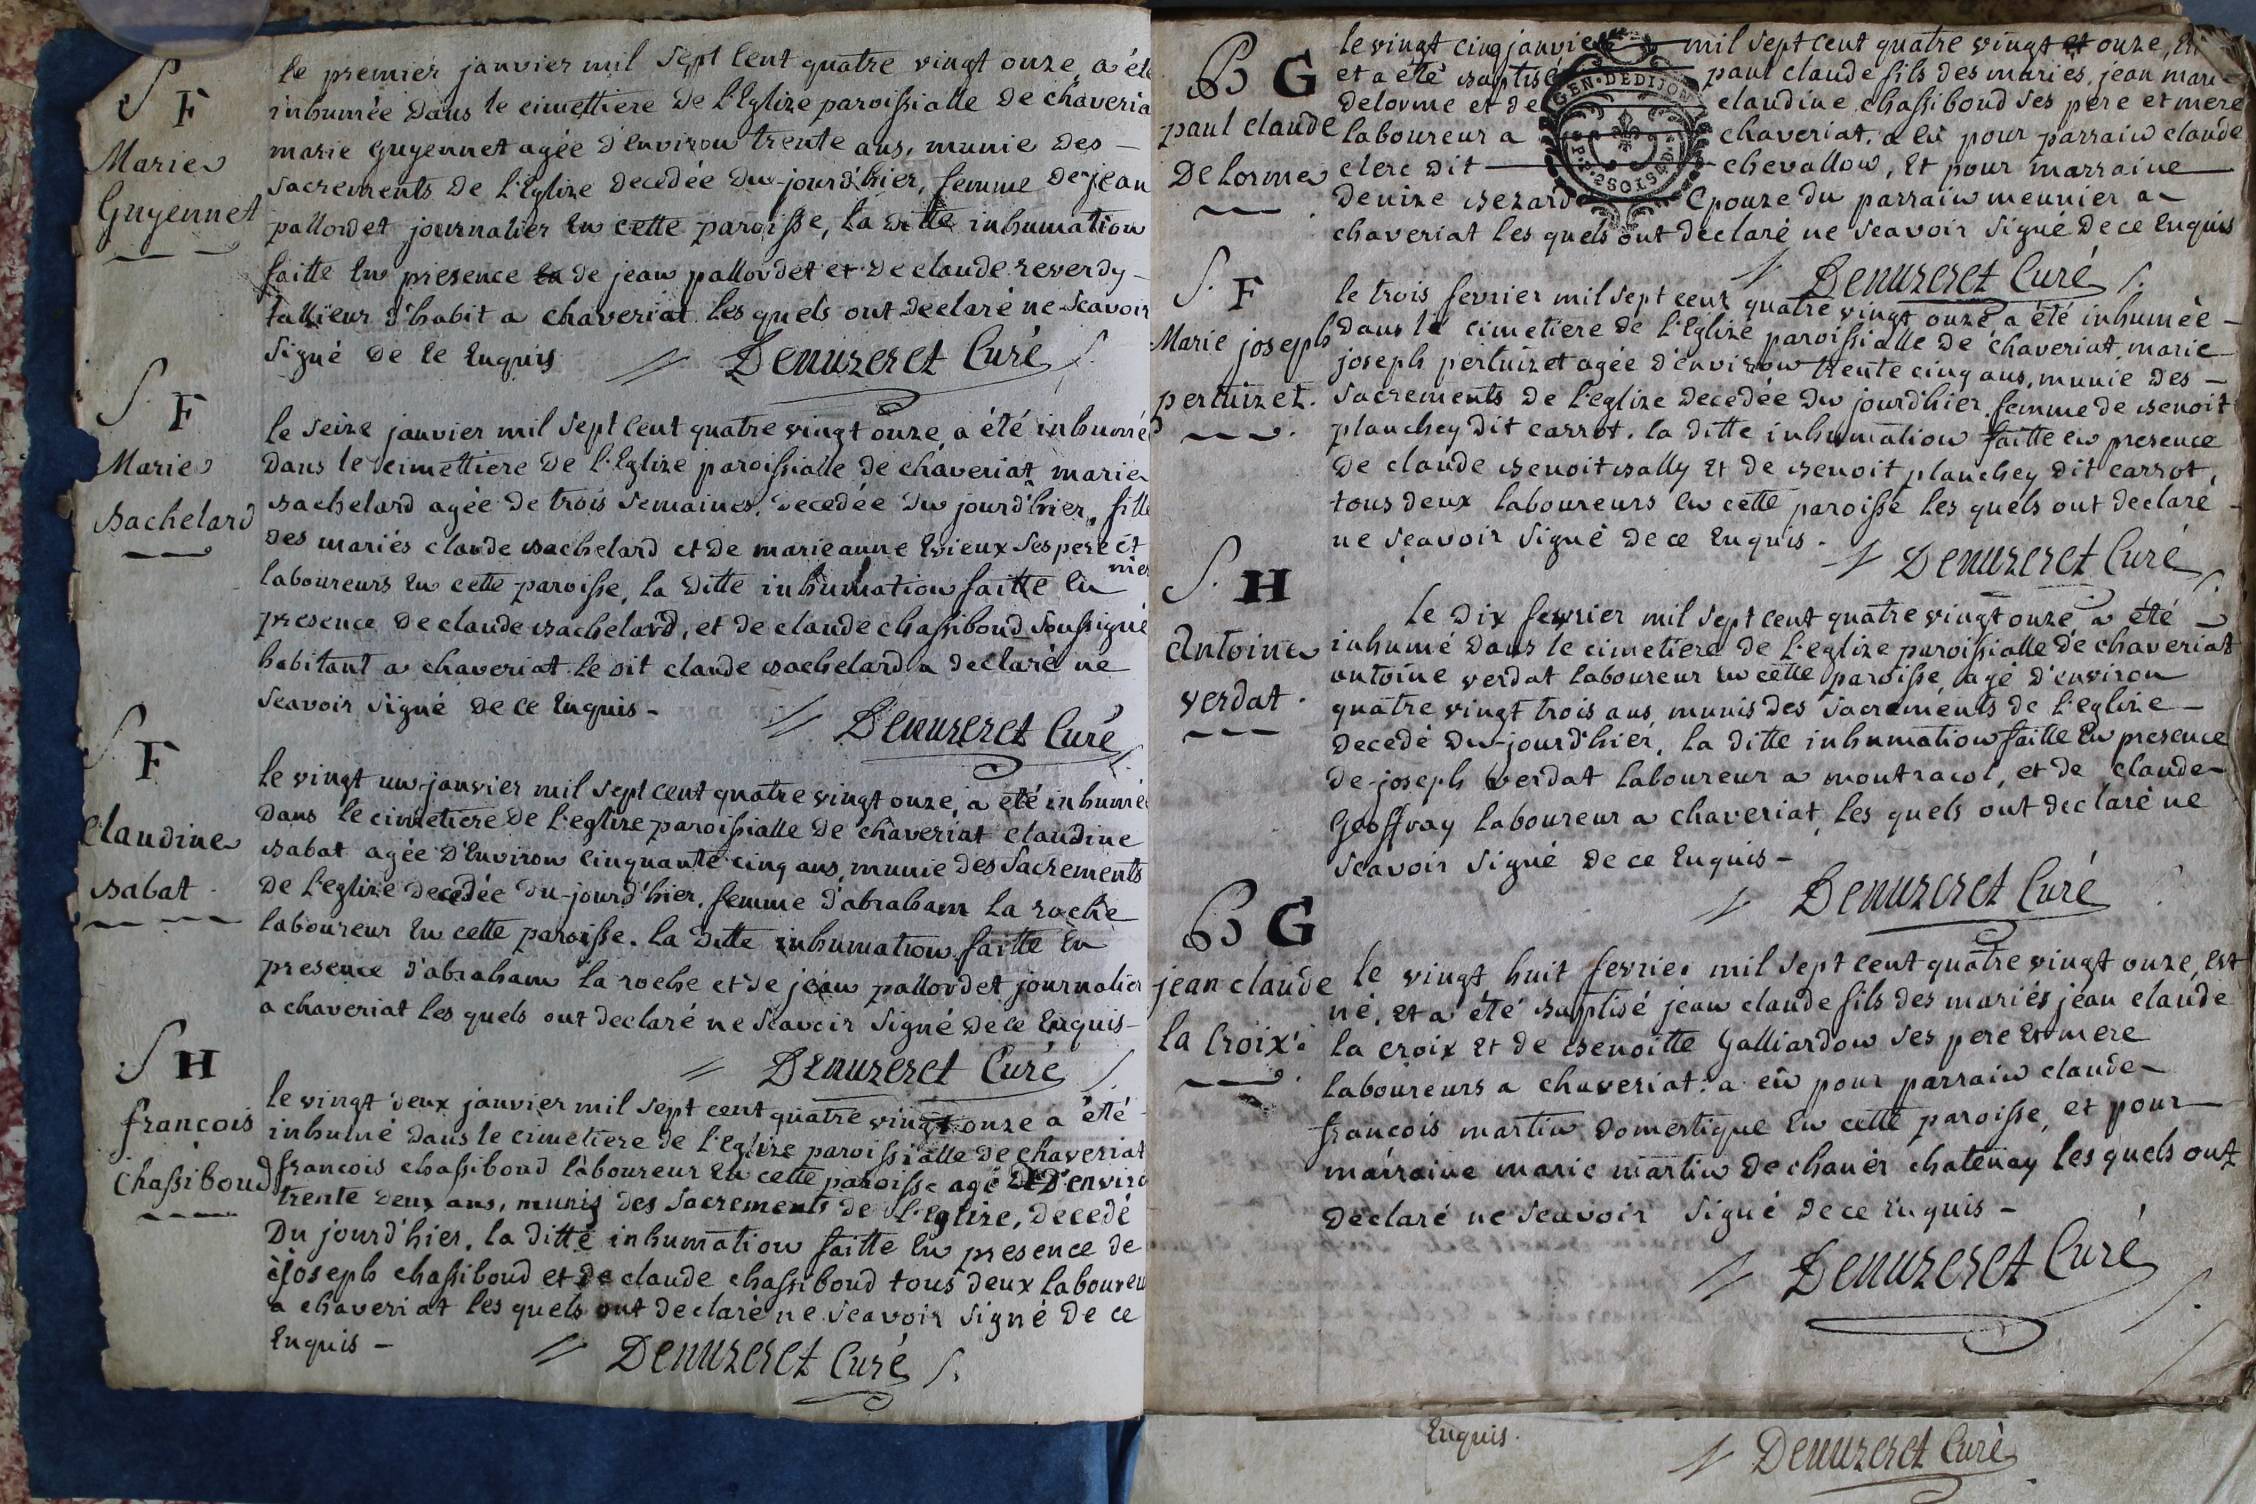 S F
Marie
Guyennet
le premier janvier mil sept cent quatre vingt onze, a été
inhumée dans le cimettiere de l'Eglize paroissialle de chaveria
marie Guyennet agée d'environ trente ans, munie des
sacrements de l'Eglize decedée du jourd'hier, femme de jean
pallordet journalier en cette paroisse, la ditte inhumation
faitte en presence de jean pallordet et de claude reverdy
tallieur d'habit a chaveriat les quels ont declaré ne scavoir
signé de ce Enquis
Denuzeret Curé
S F
Marie
Bachelard
le seize janvier mil sept cent quatre vingt onze, a été inhumé
dans le cimettiere de l'Eglize paroissialle de chaveriat marie
Bachelard agée de trois semaines, decedée du jourd'hier, fille
des mariés claude Bachelard et de marie anne Evieux ses pere et
mer
laboureurs en cette paroisse, la ditte inhumation faitte en
presence de claude Bachelard, et de claude chassiboud soussigné
habitant a chaveriat le dit claude Bachelard a declaré ne
scavoir signé de ce Enquis
Denuzeret Curé
S F
Claudine
Babat
le vingt un janvier mil sept cent quatre vingt onze, a été inhumé
dans le cimetiere de l'eglize paroissialle de chaveriat claudine
Babat agée d'Environ cinquante cinq ans, munie des sacrements
de l'eglize decedée du jourd'hier, femme d'abraham la roche
laboureur en cette paroisse. la ditte inhumation faitte en
presence d'abraham la roche et de jean pallordet journalier
a chaveriat les quels ont declaré ne scavoir signé de ce Enquis
Denuzeret Curé
S H
francois
Chassiboud
le vingt deux janvier mil sept cent quatre vingt onze a été
inhumé dans le cimetiere de l'Eglize paroissialle de chaveriat
francois chassiboud laboureur en cette paroisse agé d'enviro
trente deux ans, munis des sacrements de l'Eglize, decedé
du jourd'hier, la ditte inhumation faitte en presence de
joseph chassiboud et de claude chassiboud tous deux laboureu
a chaveriat les quels ont declaré ne scavoir signé de ce
Enquis
Denuzeret Curé
B G
paul claude
Delorme
le vingt cinq janvier mil sept cent quatre vingt onze,
et a été Baptisé paul claude fils des mariés jean marie
delorme et de claudine chassiboud ses pere et mere
laboureur a chaveriat. a eü pour parrain claude
clerc dit chevallon, et pour marraine
denize Bezard Epouze du parrain meunier a
chaveriat les quels ont declaré ne scavoir signé de ce Enquis
GEN. DED
Denuzeret Curé
S. F
Marie joseph
pertuizet.
le trois fevrier mil sept cent quatre vingt onze a été inhumée
dans le cimetiere de l'Eglize paroissialle de chaveriat, marie
joseph pertuizet agée d'environ trente cinq ans, munie des
sacrements de l'eglize decedée du jourd'hier, femme de Benoit
planchey dit carrot. la ditte inhumation faitte en presence
de claude Benoit Bally et de Benoit planchey dit carrot,
tous deux laboureurs en cette paroisse les quels ont declaré
ne scavoir signé de ce Enquis.
Denuzeret Curé
S. H
Antoine
verdat
le dix fevrier mil sept cent quatre vingt onze a été
inhumé dans le cimetiere de l'eglize paroissialle de chaveriat
antoine verdat laboureur en cette paroisse, agé d'environ
quatre vingt trois ans, munis des sacrements de l'eglize
decedé du jourd'hier, la ditte inhumation faitte en presence
de joseph verdat laboureur a montracol, et de claude
Geoffray laboureur a chaveriat, les quels ont declaré ne
scavoir signé de ce Enquis
Denuzeret Curé
B G
jean claude
la Croix
le vingt huit fevrier mil sept cent quatre vingt onze, est
né, et a été Baptisé jean claude fils des mariés jean claude
la croix et de Benoitte Galliardon ses pere et mere
laboureurs a chaveriat: a eü pour parrain claude
francois martin domestique en cette paroisse, et pour
marraine marie martin de chanér chatenay les quels ont
declaré ne scavoir signé de ce Enquis
Denuzeret Curé
Enquis.
Denuzeret Curé